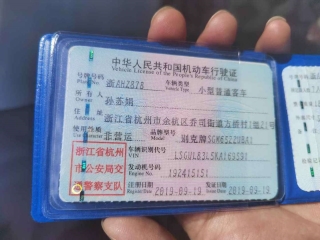 中华人民共和国机动车行驶证
Vehicle License of the People's Republic of China
号牌号码
Plate No.
车辆类型
Vehicle Type
小型普通客车
所有人
Owner
孙苏娟
住址
Address
浙江省杭州市余杭区乔司街道方桥村
使用性质
非营运
品牌型号
Model
别克牌
浙江省杭州
市公安局交
通警察支队
车辆识别代号
VIN
发动机号码
Engine No.
192415151
注册日期
2019-09-19
发证日期
2019-09-19